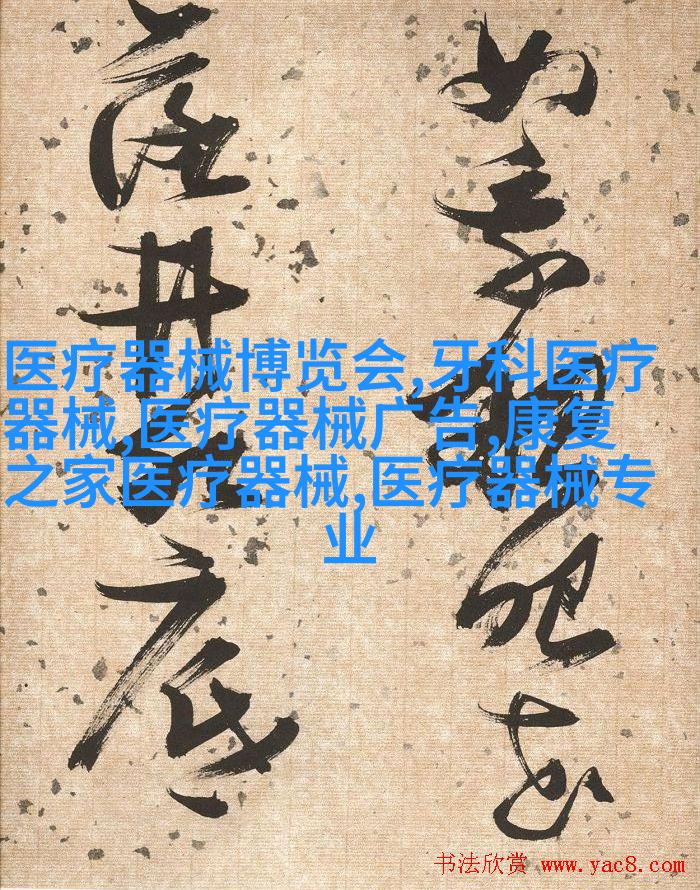 如肥
井底
医疗器械博览会,牙科医疗
器械,医疗器械广告,康复
之家医疗器械,医疗器械专
业
书法欣赏 www.yac8.com